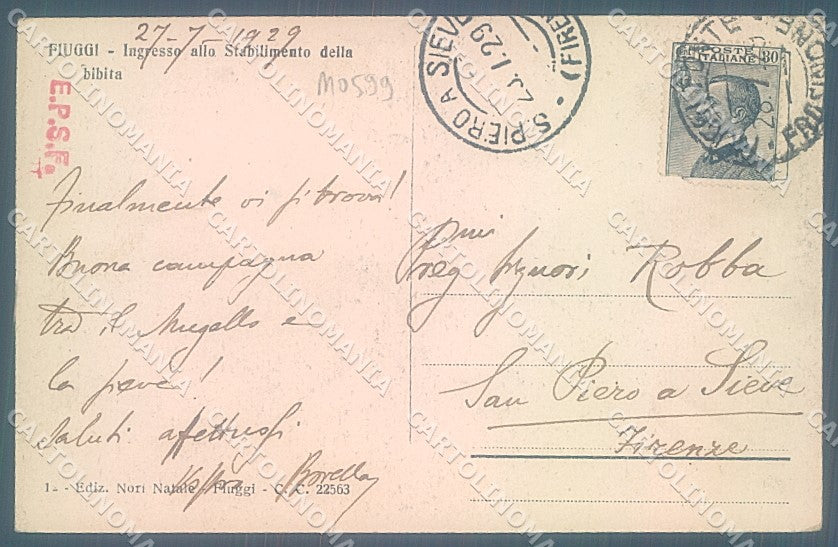 27-7-1929
FIUGGI - Ingresso allo Stabilimento della
bibita
M0599
E.P.S.F.
S. PIERO A SIEVE (FIRENZE)
29
POSTE ITALIANE 30
FROSINONE
Finalmente vi si trova!
Buona campagna
tra il Mugello e
la pieve!
Saluti affettuosi
Borella
Pregmi Signori Robba
San Piero a Sieve
Firenze
1 - Ediz. Nori Natale - Fiuggi - C. C. 22563
CARTOLINOMANIA